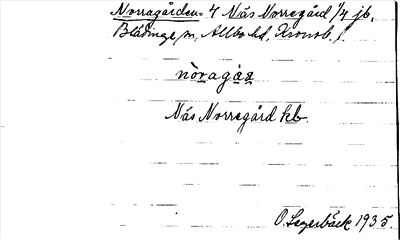 Norragården 4 Näs Norregård 1/4 jb.
Blädinge sn, Allbo hd, Kronob. l.
nòragáa
Näs Norregård kb.
O. Segerbäck 1935.